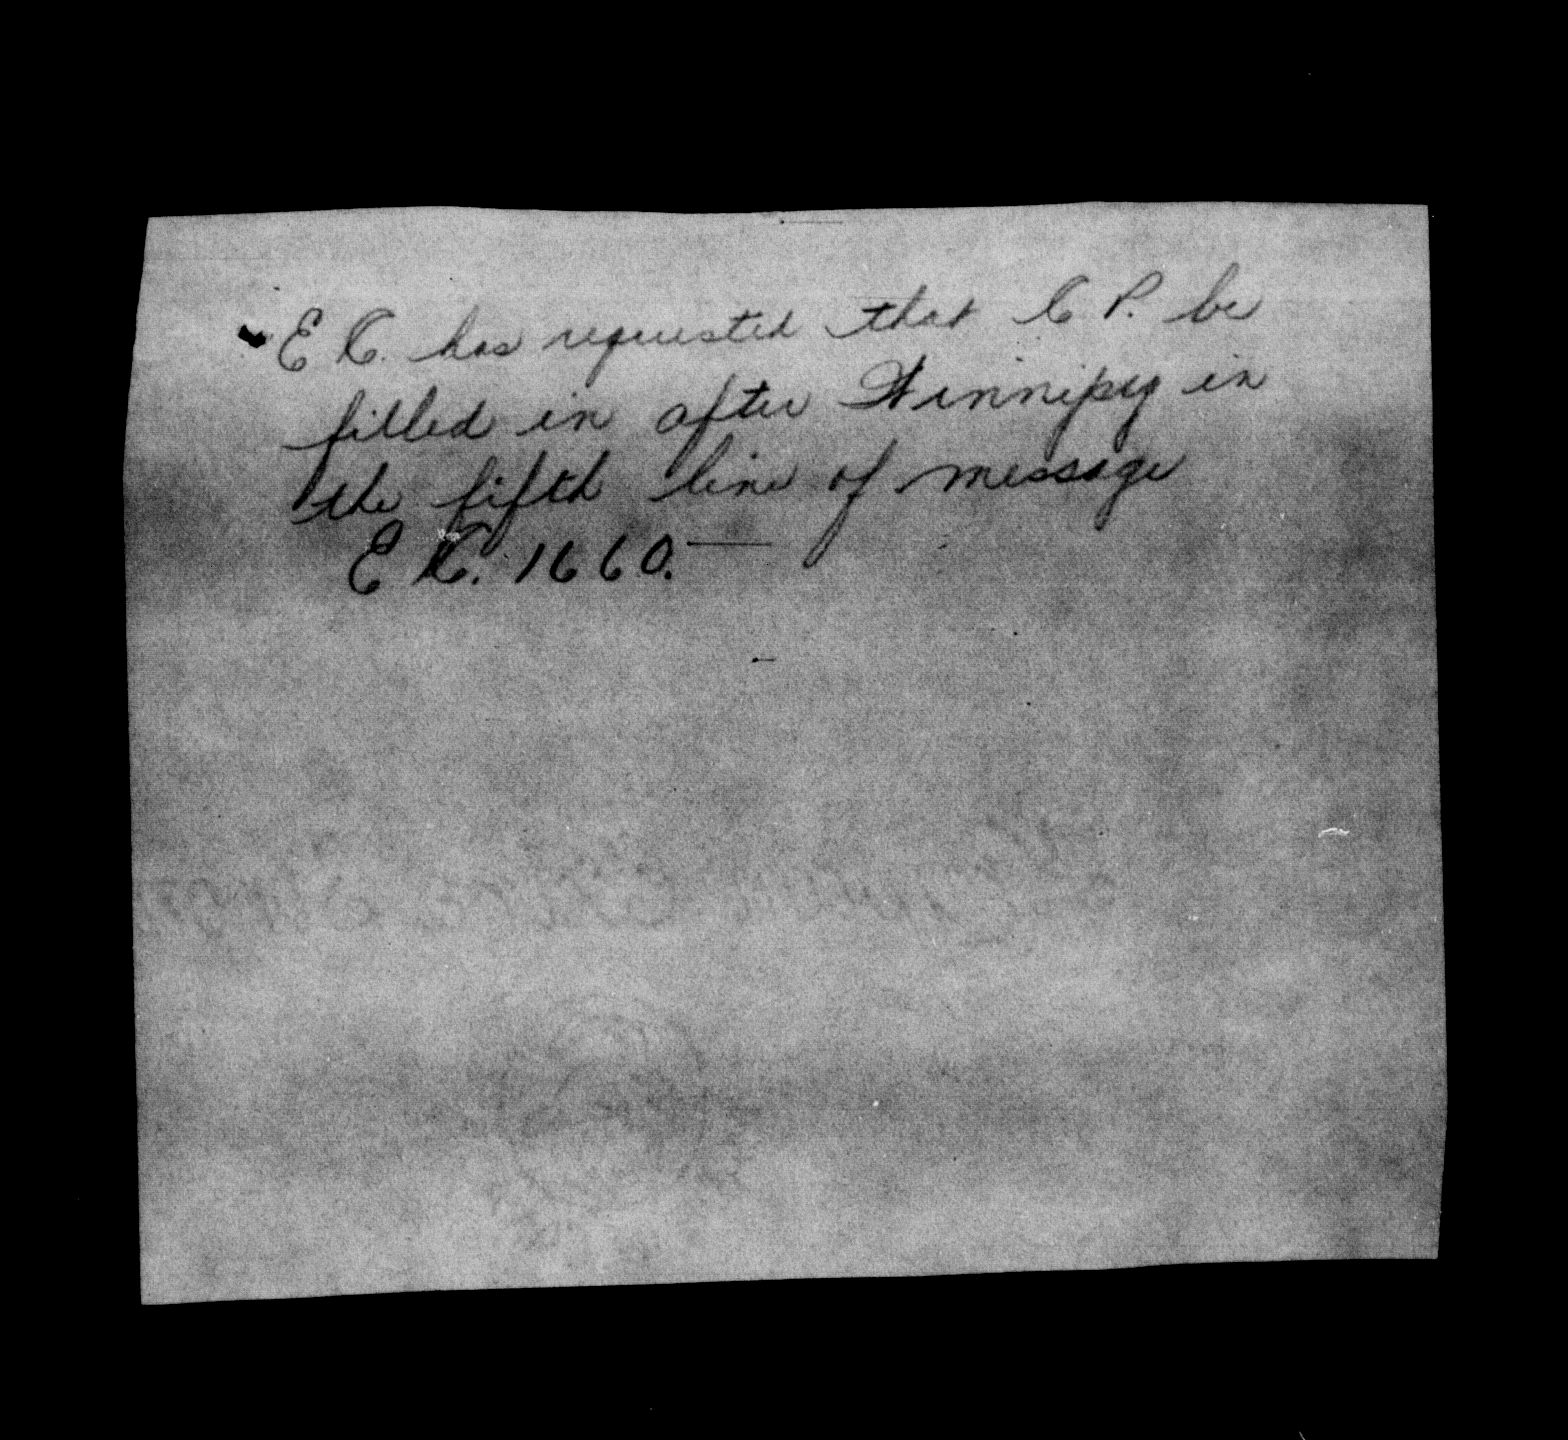 E C. has requested that C P. be
filled in after Winnipeg in
the fifth line of message
E C. 1660.